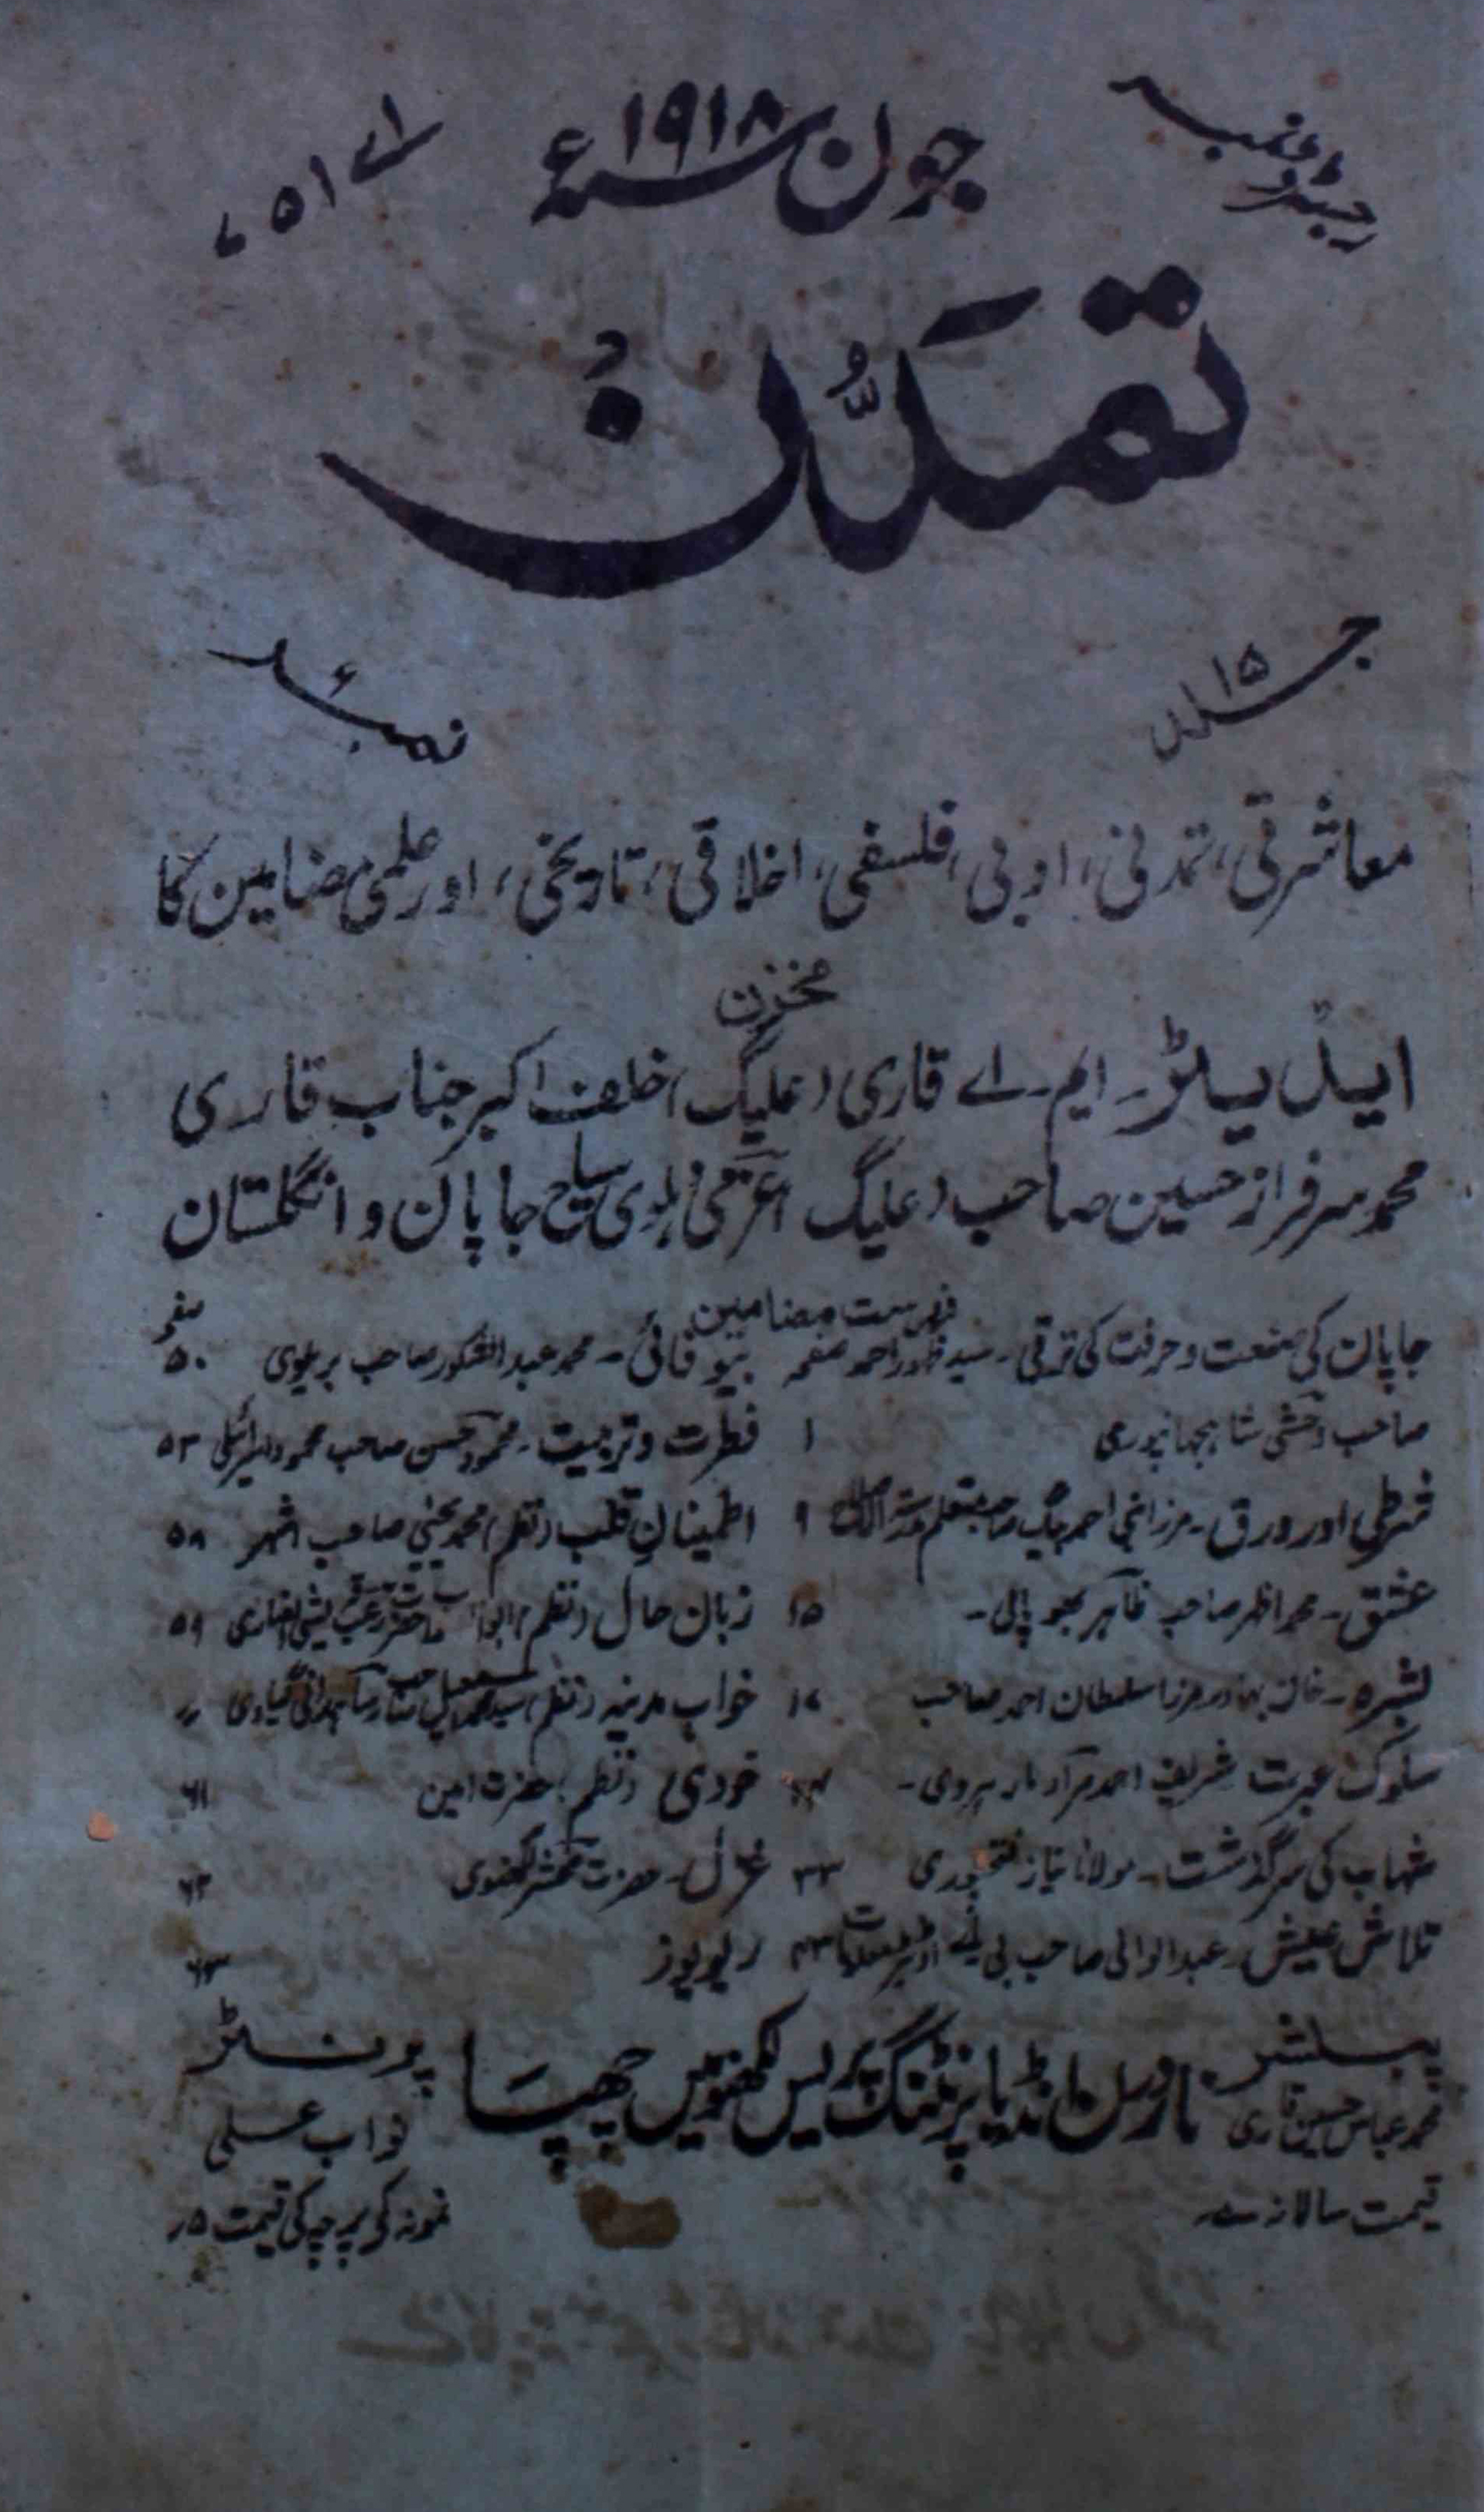 رجسٹرڈ نمبر
جون سنہ ۱۹۱۸ء
اے ۵۱۷
تمدن
جلد ۱۵
نمبر ۶
معاشرتی، تمدنی، ادبی، فلسفی، اخلاقی، تاریخی، اور علمی مضامین کا
مخزن
ایڈیٹر۔ ایم۔ اے قاری (علیگ) خلف اکبر جناب قاری
محمد سرفراز حسین صاحب (علیگ) عزمی دہلوی سیاح جاپان و انگلستان
فہرست مضامین
جاپان کی صنعت و حرفت کی ترقی۔ سید ظہور احمد صفحہ
صاحب وحشی شاہجہانپوری ۱
قرطی اور ورق۔ مرزا فہیم احمد بیگ صاحب متعلم ۹
عشق۔ محمد اظہر صاحب ظاہر بھوپالی۔ ۱۵
بشرہ۔ خان بہادر مرزا سلطان احمد صاحب ۱۷
سلوک عبرت شریف احمد مرآد مارہروی۔
شہاب کی سرگذشت۔ مولانا نیاز فتحپوری ۳۳
تلاش عیش۔ عبدالوالی صاحب بی اے ۴۳
صفحہ
بیوفائی۔ محمد عبدالشکور صاحب بریلوی ۵۰
فطرت و تربیت۔ محمود حسن صاحب محمود اسرائیلی ۵۳
اطمینان قلب (نظم) محمد یحییٰ صاحب اشہر ۵۸
زبان حال (نظم) ۵۹
خواب مدینہ (نظم) سید محمد اسمعیل صاحب رسا ہمدانی گیاوی 〃
خودی (نظم) حضرت امین ۶۱
غزل۔ حضرت محشر لکھنوی ۶۲
ریویوز ۶۳
پبلشر
محمد عباس حسین قاری
نادرل انڈیا پرنٹنگ پریس لکھنؤ میں چھپا
پرنٹر
نواب علی
قیمت سالانہ
نمونہ کو پرچہ کی قیمت ۵ر